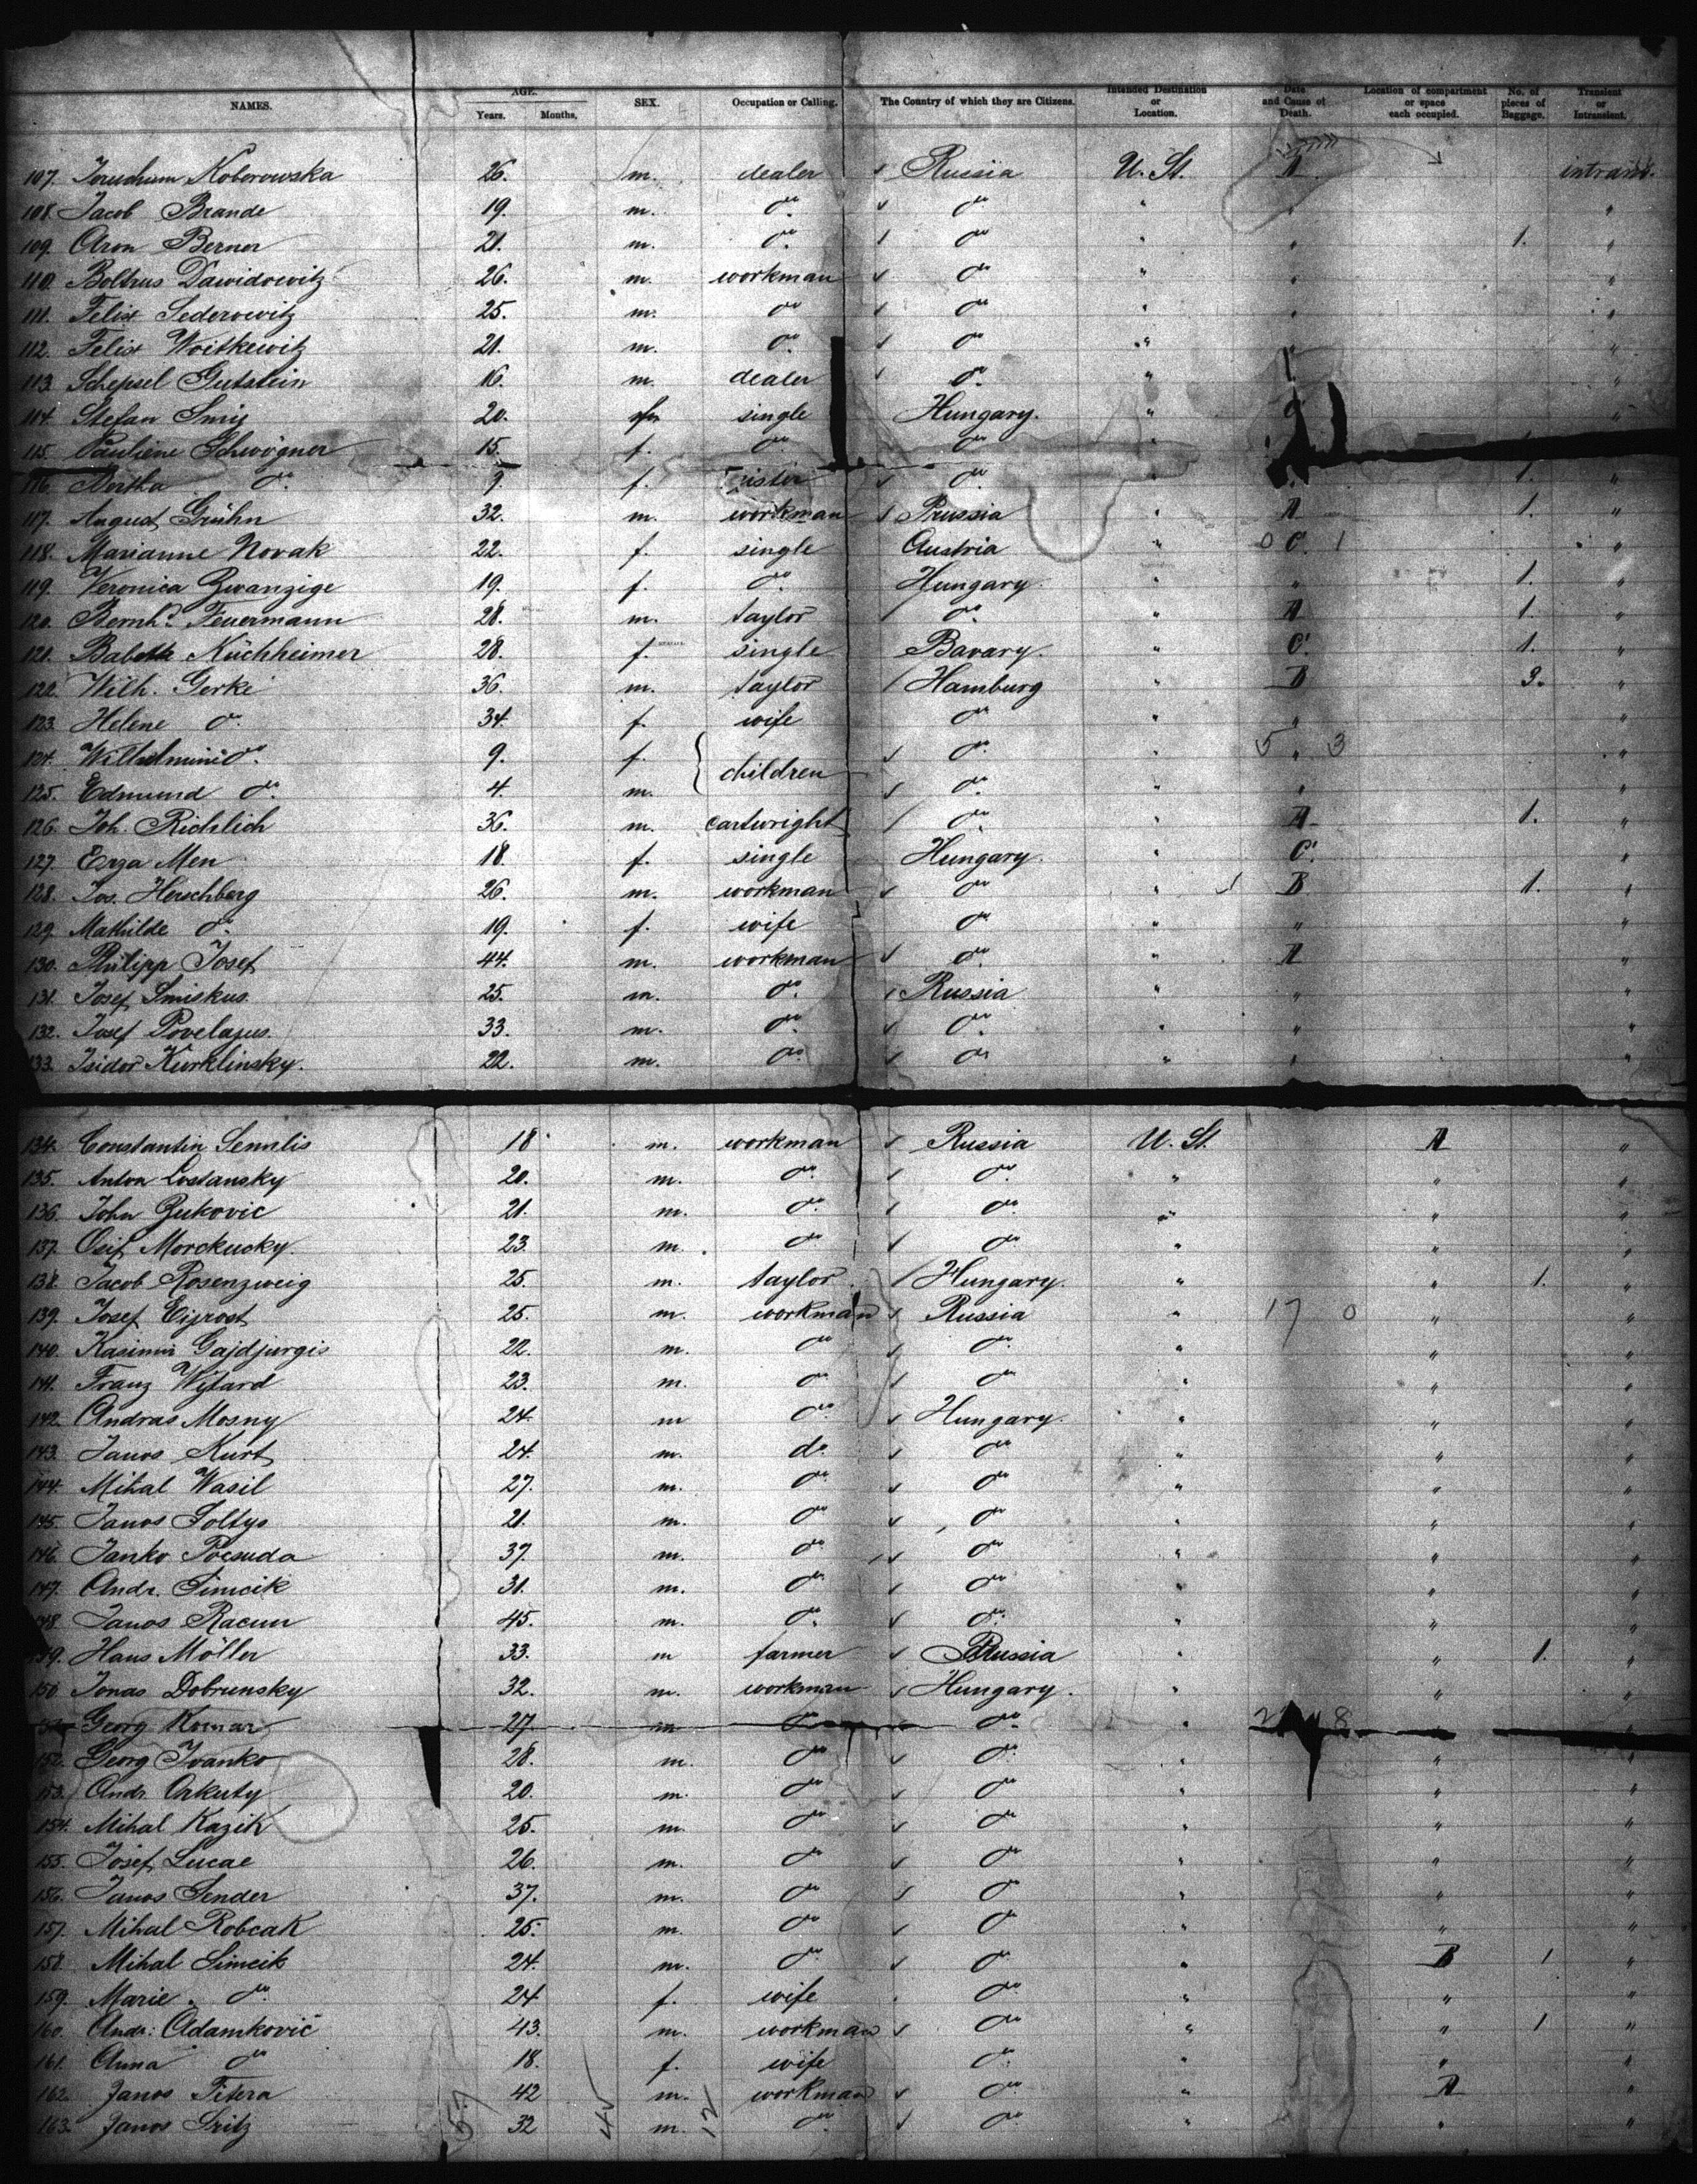 NAMES. AGE. Years. Months. SEX. Occupation or Calling. The Country of which they are Citizens. Intended Destination or Location. Date and Cause of Death. Location of compartment or space each occupied. No. of pieces of Baggage. Transient or Intransient.
107. Koborowska 26. m. dealer Russia U. St. A
108. Jacob Brande 19. m. do. do. "
109. Aron Berner 21. m. do. do. " " 1. "
110. Boltrus Dawidowitz 26. m. workman do. " " "
111. Felix Sederowitz 25. m. do. do. " " "
112. Felix Woitkewitz 21. m. do. do. " "
113. Schepsel Gutstein 16. m. dealer do. " "
114. Stefan Smig 20. single Hungary. " C "
115. Pauliene Schwögner 15. f. do. do. "
116. Bertha do. 9. f. sister do. " 1. "
117. August Grühn 32. m. workman Prussia " A 1. "
118. Marianne Novak 22. f. single Austria " 0 C. 1 "
119. Veronica Zwanzige 19. f. do. Hungary. " " 1. "
120. Bernh. Feuermann 28. m. taylor do. " A 1. "
121. Babette Küchheimer 28. f. single Bavary. " C. 1. "
122. Wilh. Gerke 36. m. taylor Hamburg " B 3. "
123. Helene do. 34. f. wife do. " " "
124. Wilhelmine do. 9. f. children do. " 5 " 3 "
125. Edmund do. 4. m. do. " " "
126. Joh. Richlich 36. m. cartwright do. " A 1. "
127. Erza Men 18. f. single Hungary. " C. "
128. Jos. Herschberg 26. m. workman do. " B 1. "
129. Mathilde do. 19. f. wife do. " " "
130. Philipp Josef 44. m. workman do. " A "
131. Josef Smiskus. 25. m. do. Russia " " "
132. Josef Povelazus. 33. m. do. do. " " "
133. Isidor Kurklinsky. 22. m. do. do. " " "
134. Constantin Sennlis 18 m. workman Russia U. St. A "
135. Anton Lostansky 20. m. do. do. " " "
136. John Zukovic 21. m. do. do. " " "
137. Osif Morckucky. 23. m. do. do. " " "
138. Jacob Rosenzweig 25. m. taylor Hungary. " " 1. "
139. Josef Eijrost 25. m. workman Russia " 17 0 " "
140. Kasimir Gajdjurgis 22. m. do. do. " " "
141. Franz Witard 23. m. do. do. " " "
142. Andras Mosny 24. m do. Hungary. " " "
143. Janos Kurt 24. m. do. do. " " "
144. Mihal Wasil 27. m. do. do. " " "
145. Janos Soltys 21. m. do. do. " " "
146. Janko Pocsuda 37. m. do. do. " " "
147. Andr. Simcik 31. m. do. do. " " "
148. Janos Racun 45. m. do. do. " " "
149. Hans Möller 33. m farmer Prussia " " 1. "
150. Jonas Dobrunsky 32. m. workman Hungary. " " "
Georg Komar 27. m do. do. " "
152. Georg Ivanko 28. m. do. do. " " "
153. Andr. Orkuty 20. m. do. do. " " "
154. Mihal Kazik 25. m. do. do. " " "
155. Josef Lucac 26. m. do. do. " " "
156. Janos Sender 37. m. do. do. " " "
157. Mihal Robcak 25. m. do. do. " " "
158. Mihal Simcik 24. m. do. do. " B 1 "
159. Marie do. 24 f. wife do. " " "
160. Andr. Adamkovic 43. m. workman do. " " 1 "
161. Anna do. 18. f. wife do. " " "
162. Janos Titera 42 m. workman do. " A "
163. Janos Sritz 32 m. do. do. " " "
57 45 12